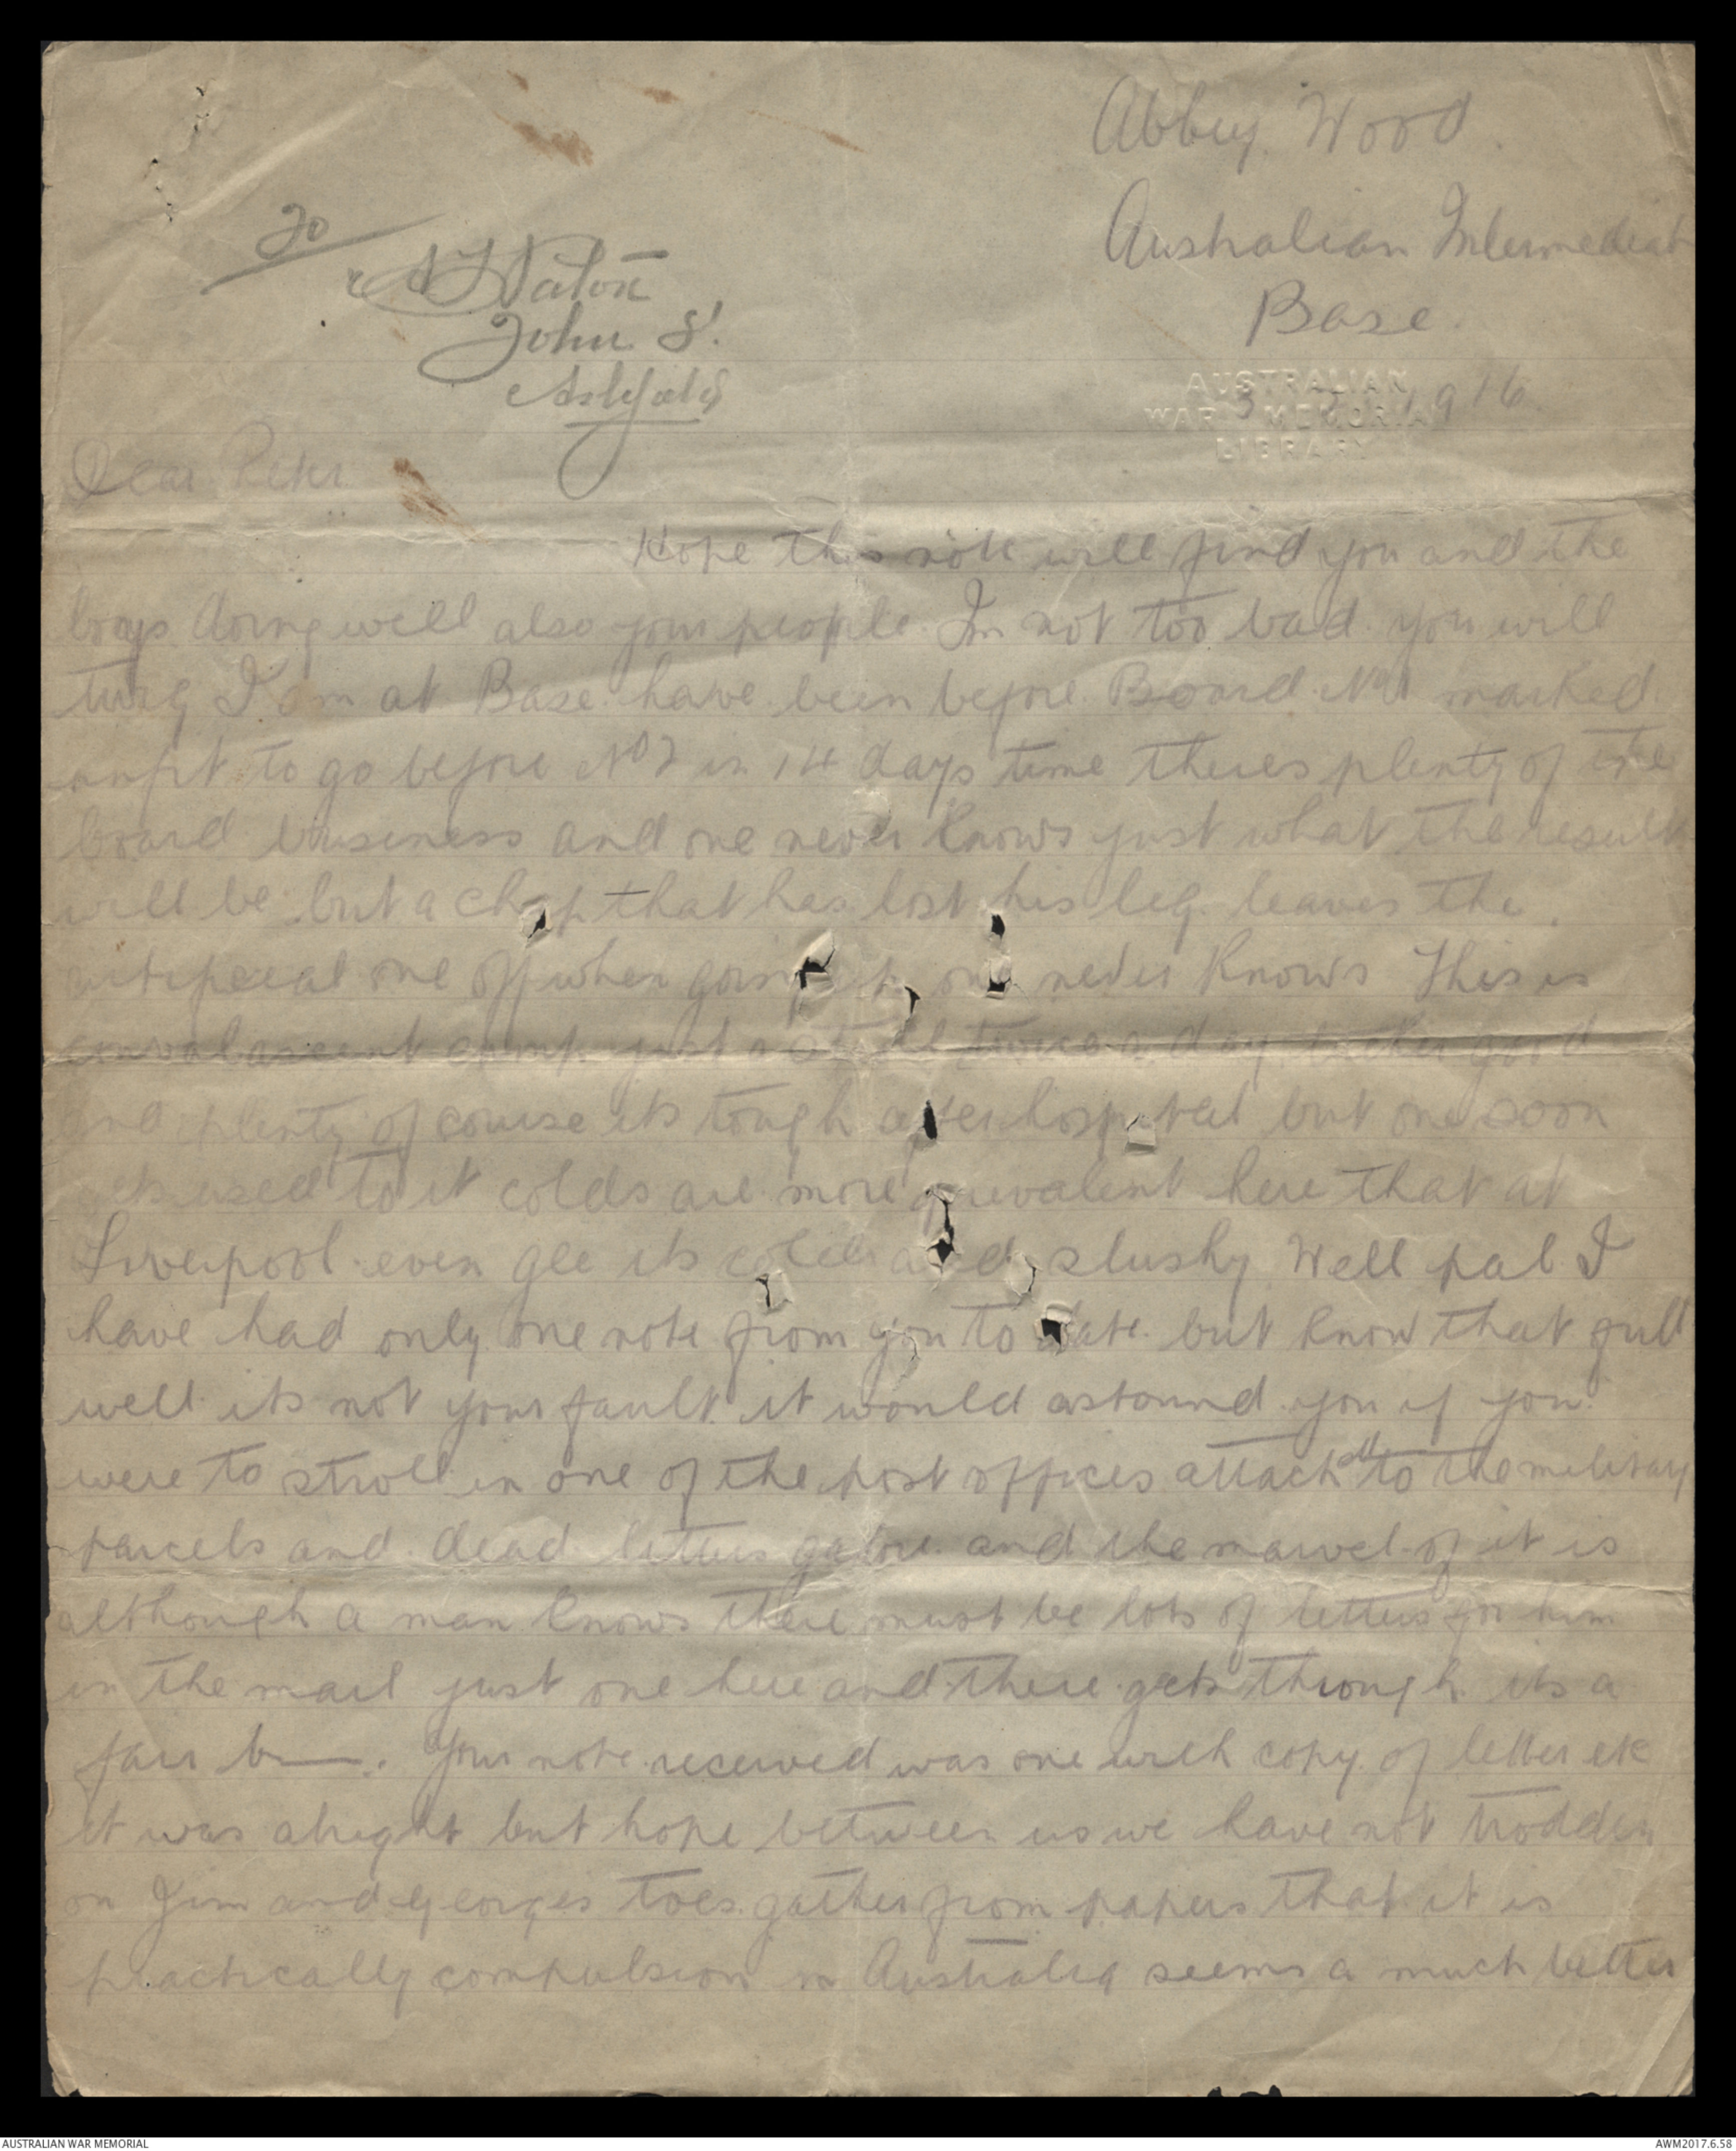 Abbey Wood.
Australian Intermediat
Base.
To
John St.
Ashfield
AUSTRALIAN
WAR MEMORIAL
LIBRARY
3 1916
Dear Peter
Hope this note will find you and the
boys doing well also your people. Im not too bad. you will
twig I am at Base. have been before Board No1 marked
unfit to go before No2 in 14 days time theres plenty of the
board business and one never knows just what the result
will be. but a chap that has lost his leg leaves the
artifecial one off when going one never knows This is
convalascent camp just a twice a day tucker good
and plenty of course its tough after hospital but one soon
gets used to it colds are more prevalent here that at
Liverpool. even gee its cold and slushy. Well pal I
have had only one note from you to date. but know that full
well its not your fault. it would astound you if you
were to stroll in one of the post offices attached to the military
parcels and dead letters galore. and the marvel of it is
although a man knows there must be lots of letters for him
in the mail just one here and there gets through. its a
fair b—. Your note received was one with copy of letter etc
it was alright but hope between us we have not trodden
on Jim and Georges toes. gather from papers that it is
practically compulsion in Australia seems a much better
AUSTRALIAN WAR MEMORIAL
AWM2017.6.58